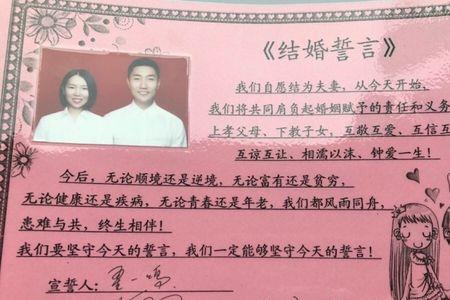 《结婚誓言》
我们自愿结为夫妻，从今天开始，
我们将共同肩负起婚姻赋予的责任和义务
上孝父母、下教子女，互敬互爱、互信互
互谅互让、相濡以沫、钟爱一生！
今后，无论顺境还是逆境，无论富有还是贫穷，
无论健康还是疾病，无论青春还是年老，我们都风雨同舟，
患难与共，终生相伴！
我们要坚守今天的誓言，我们一定能够坚守今天的誓言！
宣誓人：